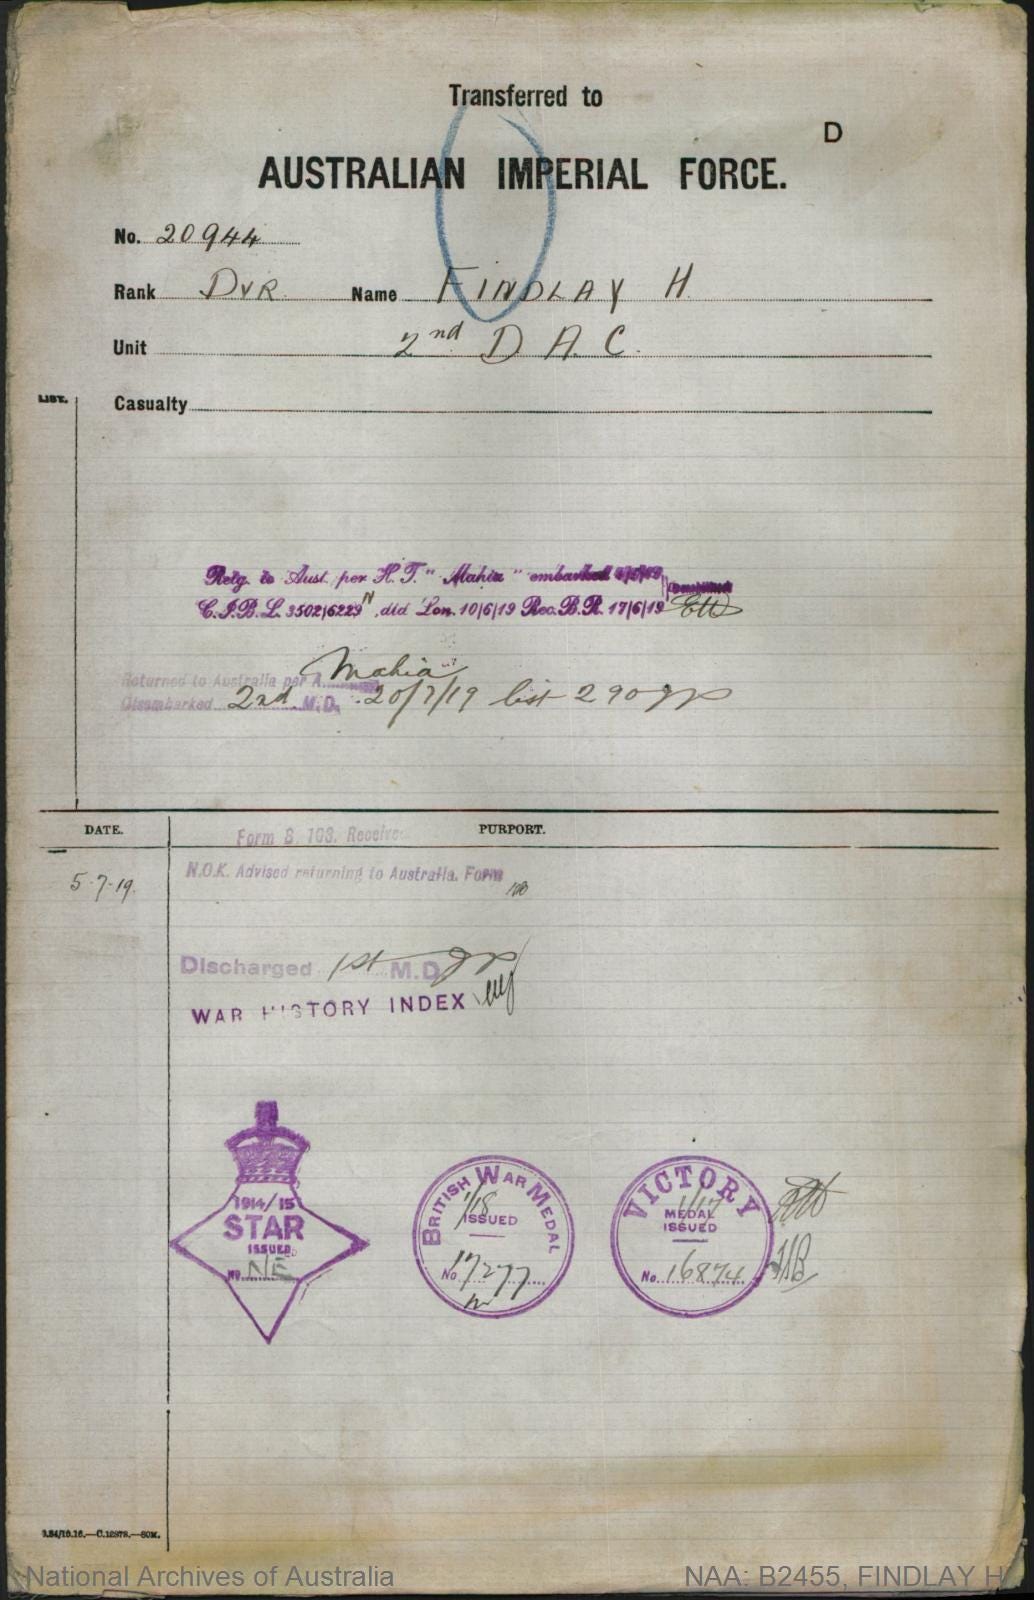 Transferred to
D
AUSTRALIAN IMPERIAL FORCE.
No. 20944
Rank DVR Name FINDLAY H
Unit 2nd D A. C.
LIST.
Casualty
Retg. to Aust. per H. T. "Mahia" embarked
C.I.B.L. 3502/6229 N did Lon. 10/6/19 Rec. B.R. 17/6/19
Returned to Australia per Mahia
Disembarked 2nd M.D. 20/7/19 list 290
DATE. PURPORT.
Form B. 103. Received
N.O.K. Advised returning to Australia. Form
5-7-19.
Discharged 1st M.D
WAR HISTORY INDEX
1914/15
STAR
ISSUED
No. NE
BRITISH WAR MEDAL
1/18
ISSUED
No. 17277
VICTORY
1/17
MEDAL
ISSUED
No. 16874
National Archives of Australia NAA: B2455, FINDLAY H